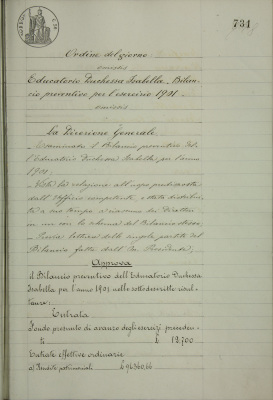 731
Ordine del giorno
omissis
Educatorio Duchessa Isabella - Bilan-
cio preventivo per l'esercizio 1901 -
omissis
La Direzione Generale
Esaminato il Bilancio preventivo del-
l'Educatorio Duchessa Isabella, per l'anno
1901;
Vista la relazione all'uopo
dall'Ufficio competente, e stata distribui-
ta a suo tempo a ciascuno dei Diretto-
ri, con lo schema del Bilancio stesso;
lettura delle singole partite del
Bilancio fatta dall'On. Presidente;
Approva
il Bilancio preventivo dell'Educatorio Duchessa
Isabella per l'anno 1901 nelle sottodescritte risul-
tanze:
Entrata
Fondo presunto di avanzo degli esercizi preceden-
ti £ 12,700
Entrate effettive ordinarie
a) Rendite patrimoniali £ 96360,66